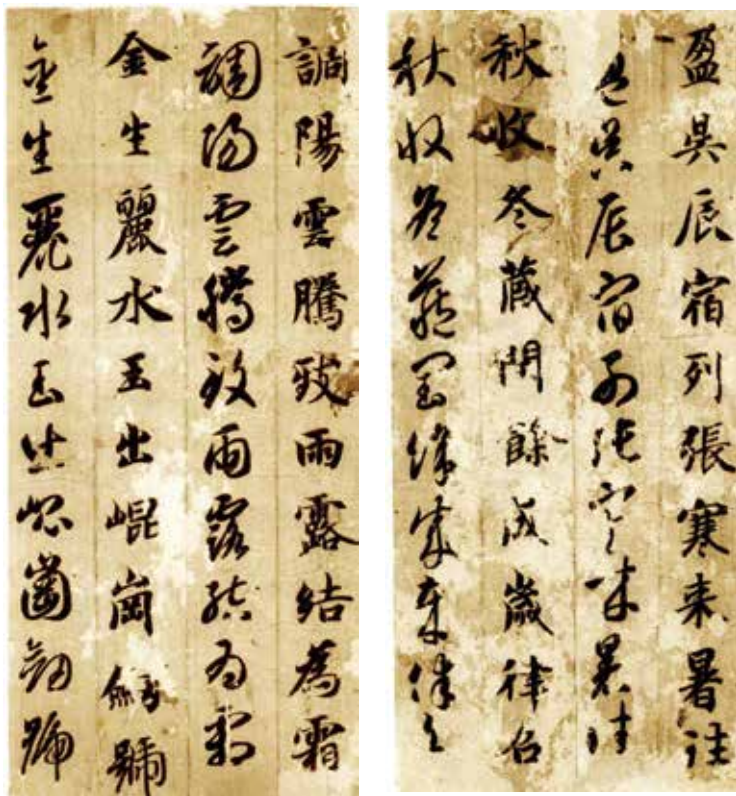 盈昃辰宿列張寒来暑往
盈昃辰宿列張寒来暑往
秋收冬藏閏餘成歲律呂
秋收冬藏閏餘成歲律呂
調陽雲騰致雨露結為霜
調陽雲騰致雨露結為霜
金生麗水玉出崐崗劒號
金生麗水玉出崐崗劒號